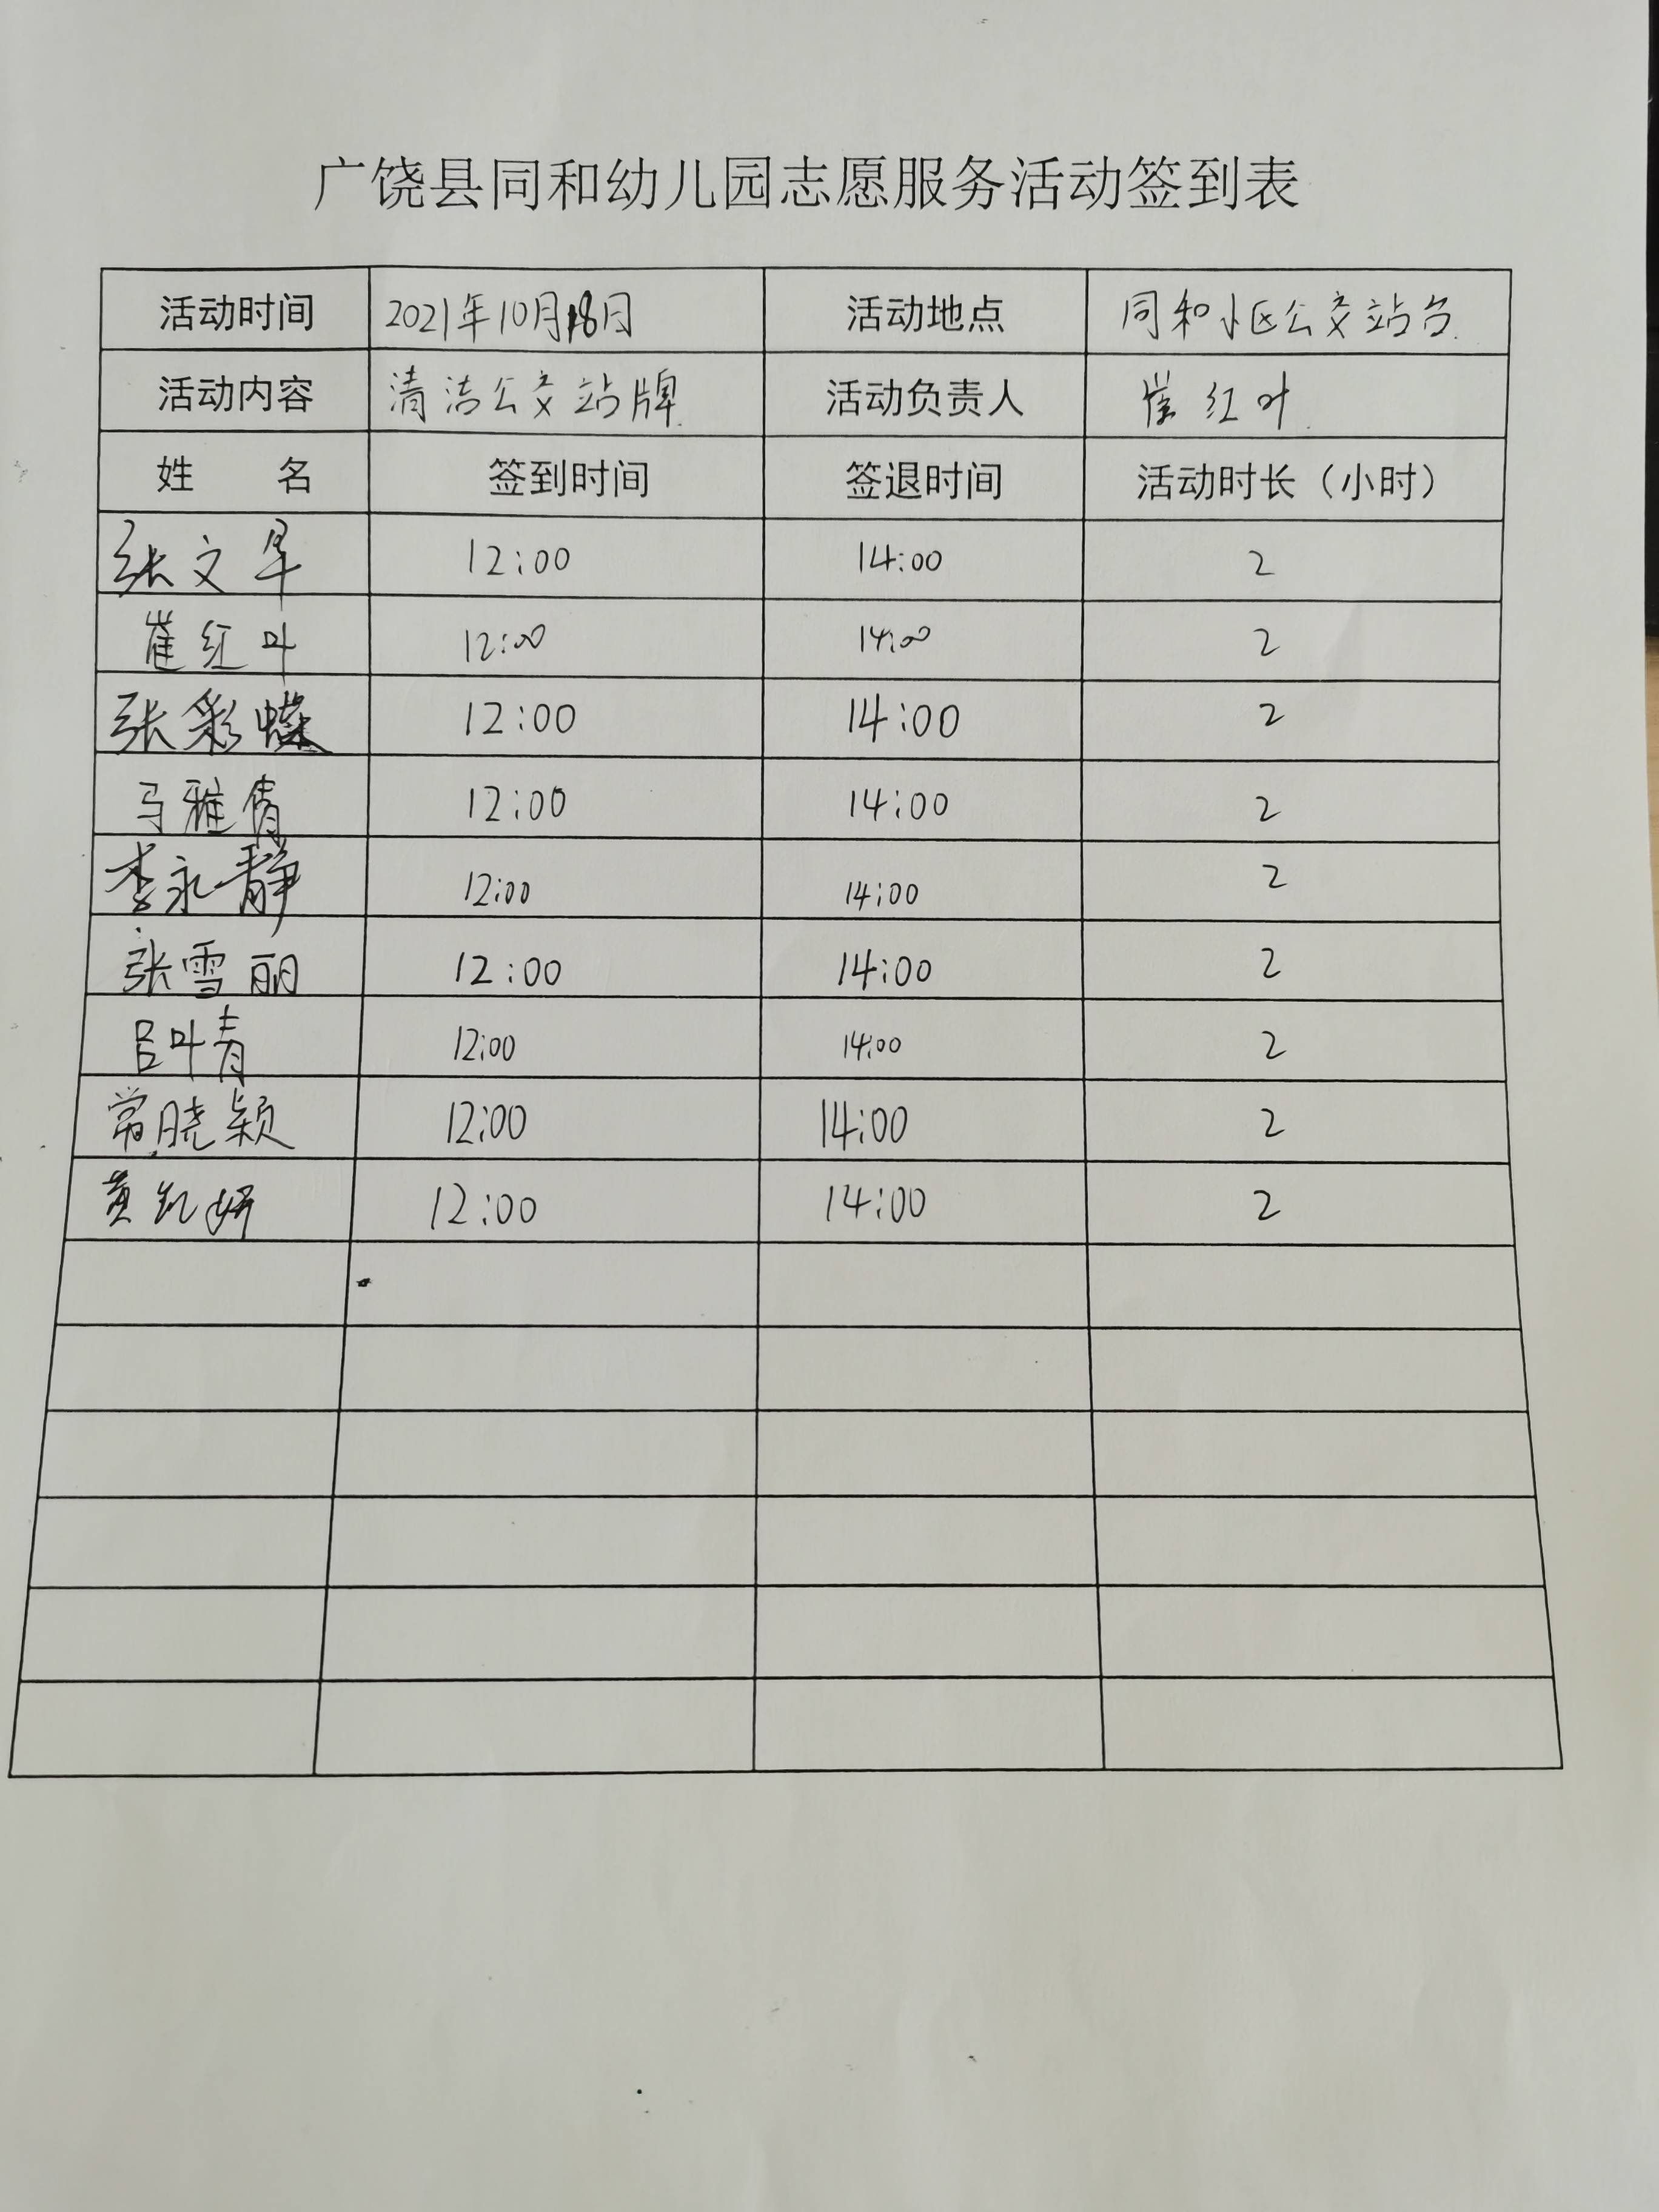 广饶县同和幼儿园志愿服务活动签到表
活动时间 2021年10月18日 活动地点 同和小区公交站台
活动内容 清洁公交站牌 活动负责人 崔红叶
姓 名 签到时间 签退时间 活动时长（小时）
张文早 12:00 14:00 2
崔红叶 12:00 14:00 2
张彩蝶 12:00 14:00 2
马雅倩 12:00 14:00 2
李永静 12:00 14:00 2
张雪丽 12:00 14:00 2
吕叶青 12:00 14:00 2
常晓颖 12:00 14:00 2
黄凯妍 12:00 14:00 2